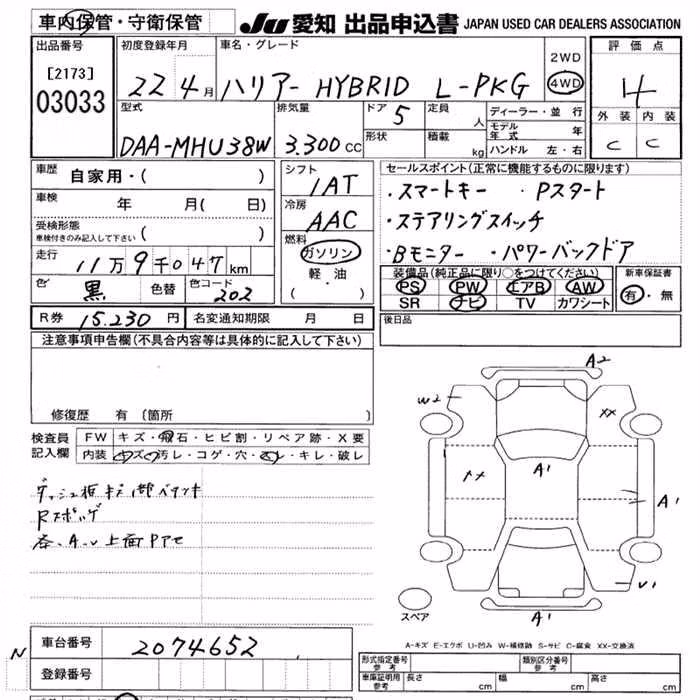 車内保管・守衛保管
JU 愛知 出品申込書 JAPAN USED CAR DEALERS ASSOCIATION
出品番号 初度登録年月 車名・グレード 評価点
[2173] 03033 22 4月 ハリアー HYBRID L-PKG 2WD 4WD 4
型式 排気量 ドア 5 定員 人 ディーラー・並行 外装 内装
モデル年式 年
DAA-MHU38W 3.300cc 形状 積載 kg ハンドル 左・右 C C
車歴 自家用・( ) シフト 1AT
セールスポイント(正常に機能するものに限ります)
・スマートキー ・Pスタート
車検 年 月( 日) 冷房 AAC
・ステアリングスイッチ
受検形態
車検付きのみ記入して下さい ( )
燃料 ガソリン 軽油 ・( )
・Bモニター ・パワーバックドア
走行 11万9千047km
装備品(純正品に限り○をつけてください) 新車保証書
色 黒 色替 色コード 202
PS PW エアB AW 有・無
SR ナビ TV カワシート
R券 15.230円 名変通知期限 月 日
後日品
注意事項申告欄(不具合内容等は具体的に記入して下さい)
修復歴 有 〔箇所 〕
検査員記入欄
FW キズ・飛石・ヒビ割・リペア跡・X要
内装 キズ・汚レ・コゲ・穴・スレ・キレ・破レ
Rスポッゲ
A2
W2
XX
XX
A1
A1
V1
A1
スペア
A-キズ E-エクボ U-凹み W-補修跡 S-サビ C-腐食 XX-交換済
N
車台番号 2074652
登録番号
形式指定番号 参考 類別区分番号 参考
車庫証明用 参考 長さ cm 幅 cm 高さ cm